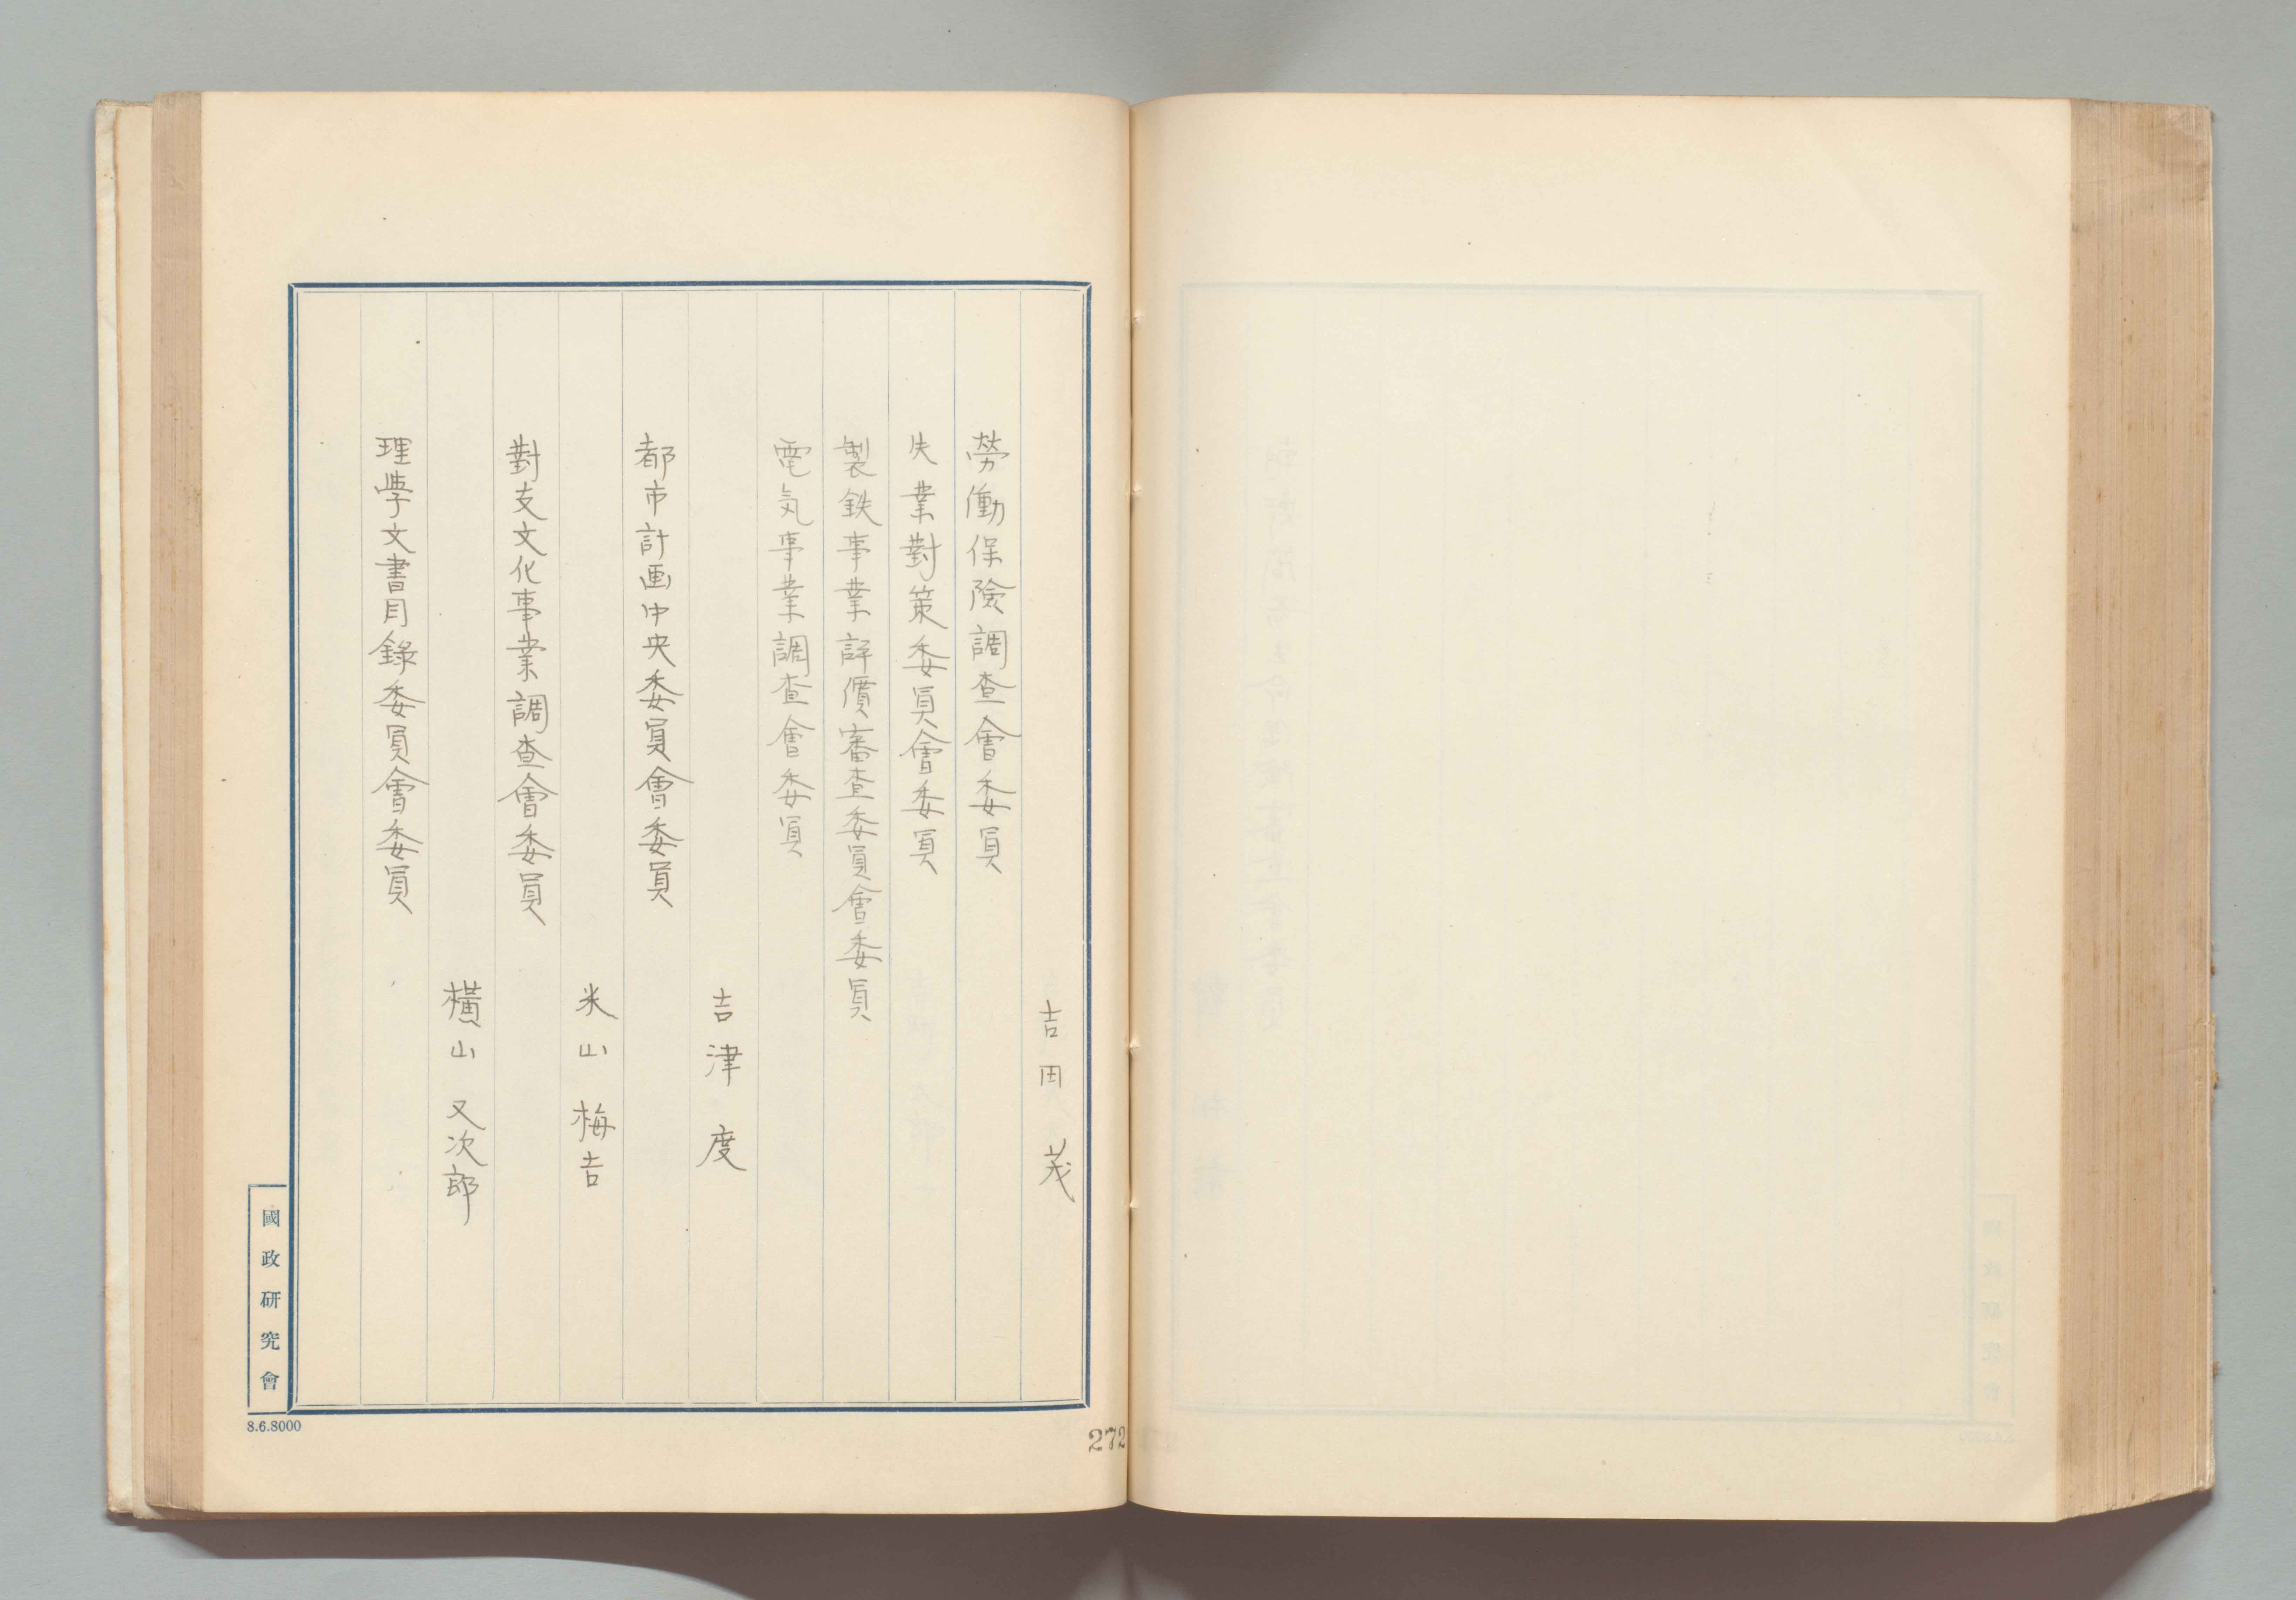 吉田茂
勞働保險調查會委員
失業對策委員會委員
製鉄事業評價審查委員會委員
電気事業調查會委員
吉津度
都市計画中央委員會委員
米山梅吉
對支文化事業調查會委員
橫山又次郎
理学文書目錄委員會委員
國政研究會
8.6.8000
272